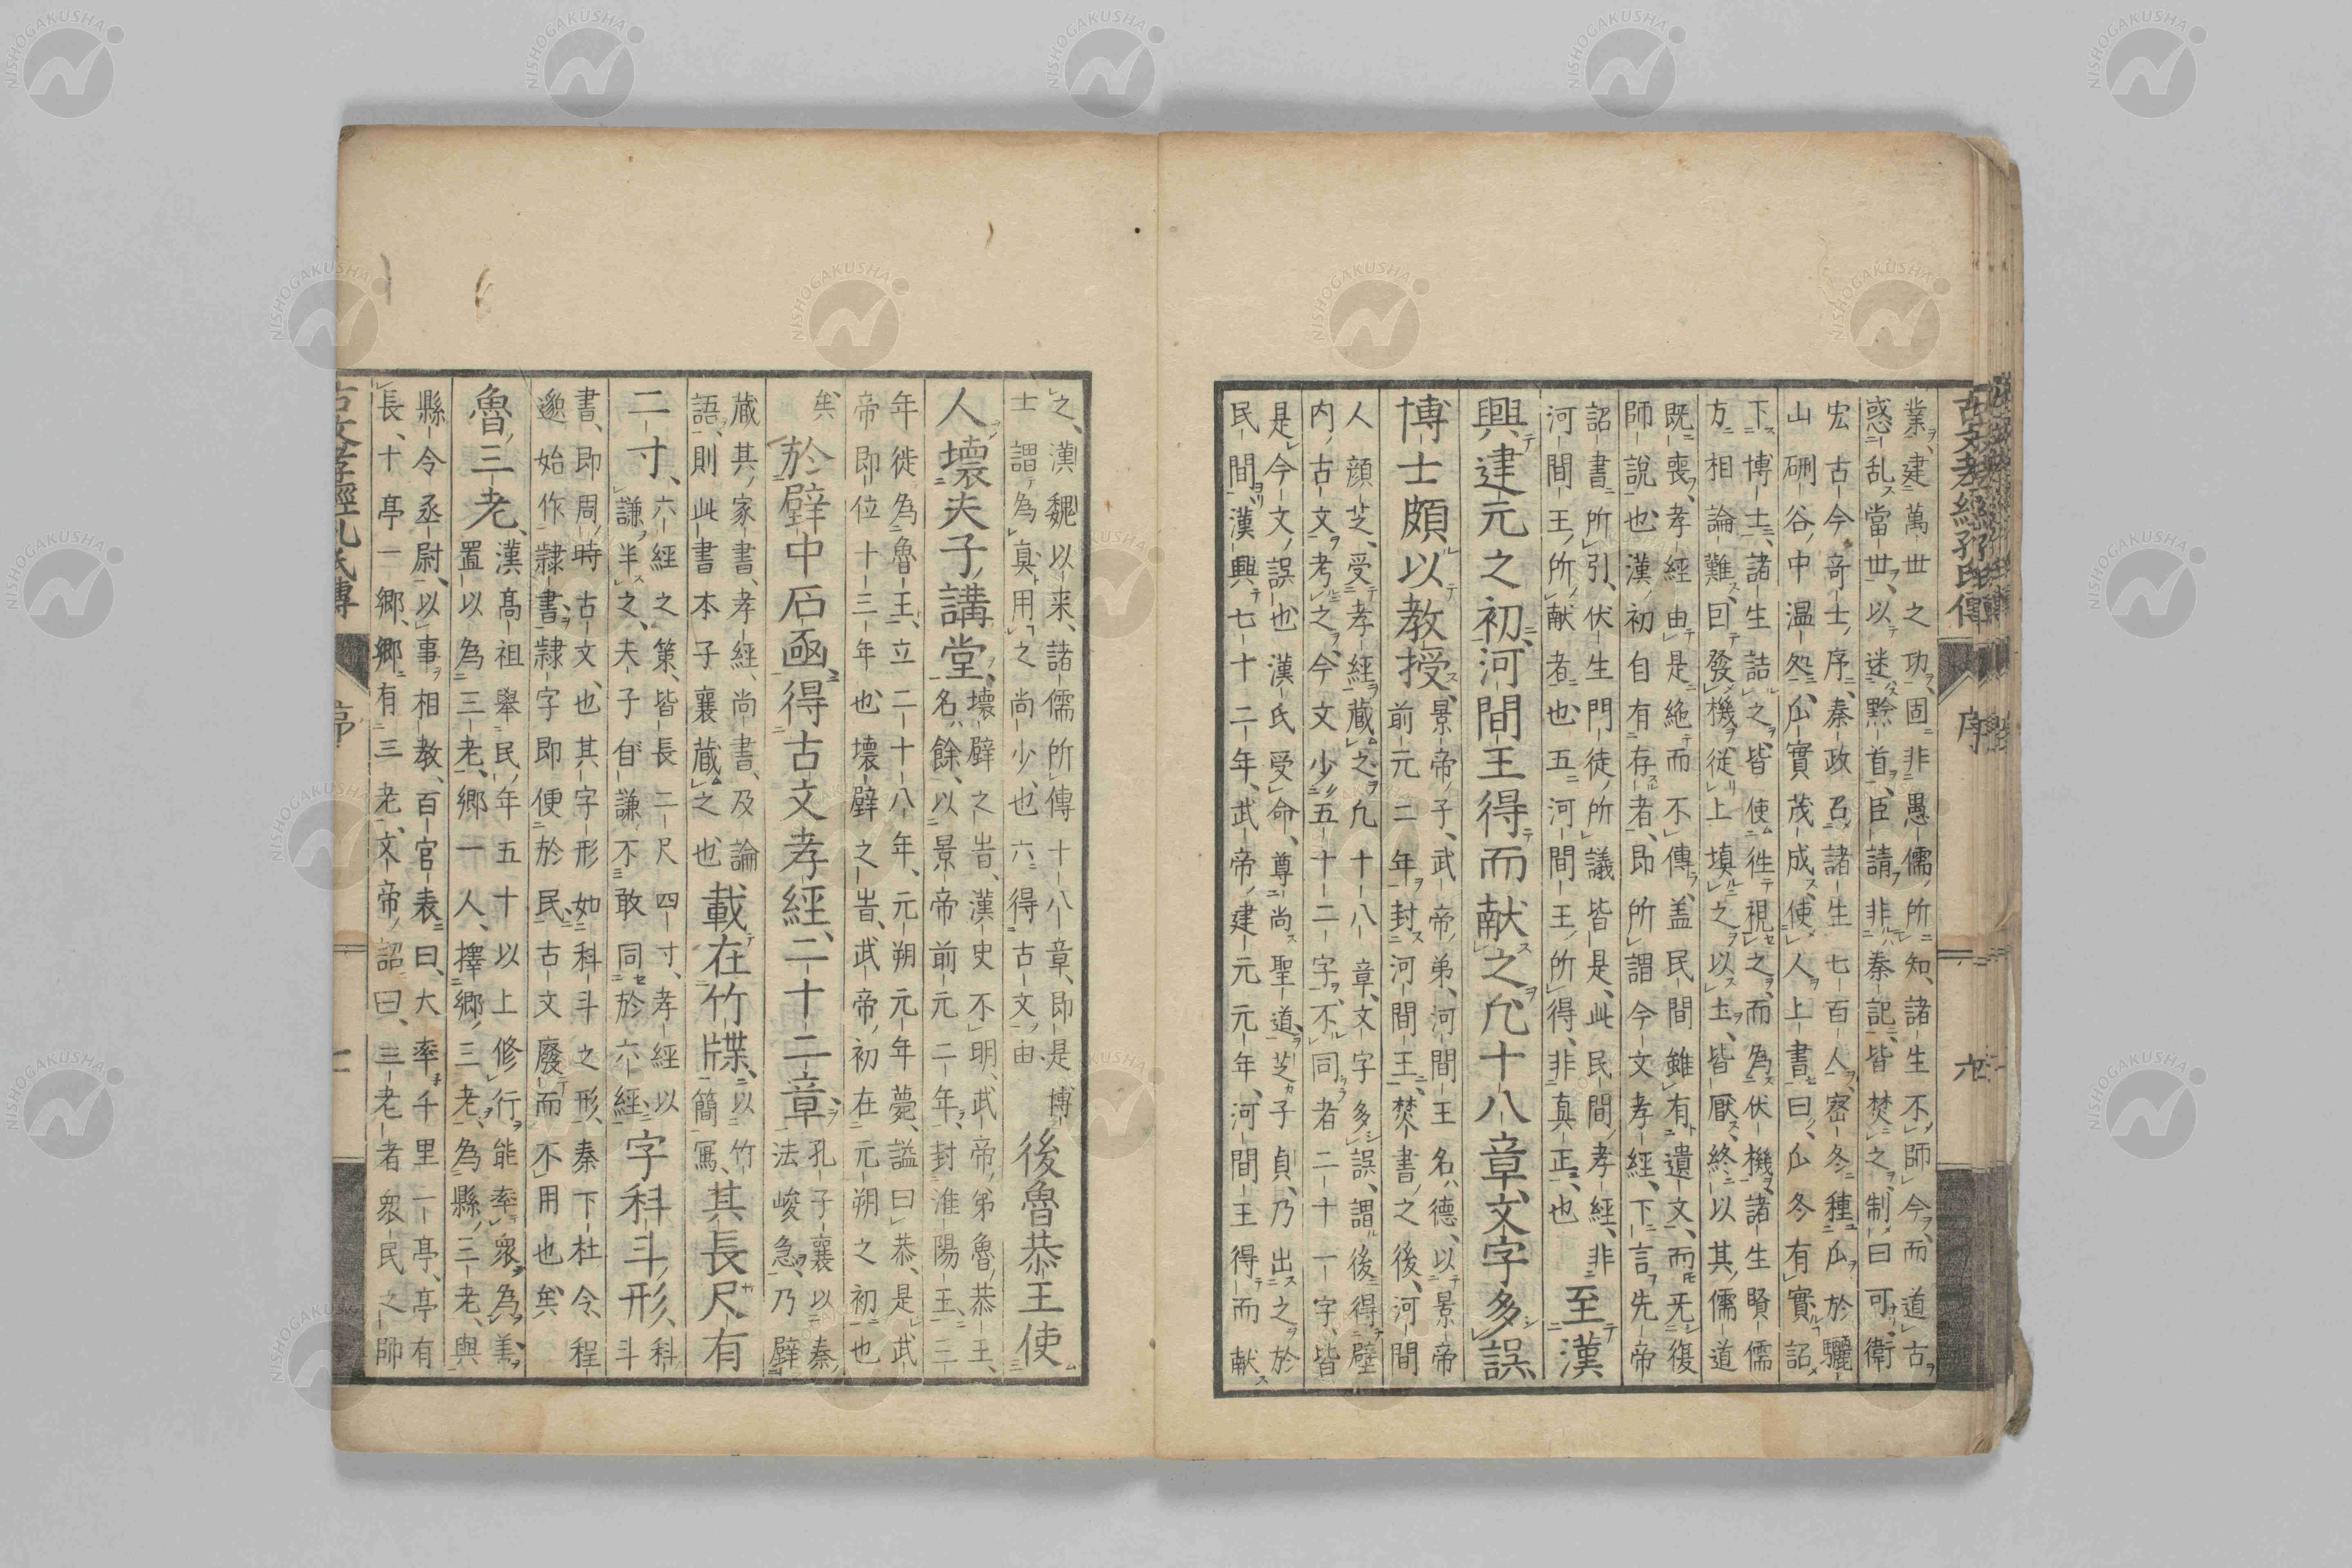 古文孝經孔氏傳 序
業建萬世之功固非愚儒所知諸生不師今而道古
惑乱當世以迷黔首臣請非秦記皆焚之制曰可衛
宏古今竒士序秦政召諸生七百人宻冬種瓜於驪
山硎谷中温処瓜實茂成使人上書曰瓜冬有實詔
下博士諸生詰之皆使徃視之而為伏機諸生賢儒
方相論難囙發機従上填之以土皆厭終以其儒道
既喪孝經由是絶而不傳盖民間雖有遺文而旡復
師說也漢初自有存者即所謂今文孝經下言先帝
詔書所引伏生門徒所議皆是此民間孝經非
河間王所献者也五河間王所得非真正也
至漢
興建元之初河間王得而献之凢十八章文字多誤
博士頗以教授
景帝子武帝弟河間王名德以景帝
前元二年封河間王焚書之後河間
人顔芝受孝經蔵之凢十八章文字多誤謂後得壁
内古文考之今文少五十二字不同者二十一字皆
是今文誤也漢氏受命尊尚聖道芝子貞乃出之於
民間漢興七十二年武帝建元元年河間王得而献
之漢魏以来諸儒所傳十八章即是博
士謂為真用之尚少也六得古文由
後魯恭王使
人壊夫子講堂
壊壁之旹漢史不明武帝弟魯恭王
名餘以景帝前元二年封淮陽王三
年徙為魯王立二十八年元朔元年薨謚曰恭是武
帝即位十三年也壊壁之旹武帝初在元朔之初也
矣
於壁中石凾得古文孝經二十二章
孔子襄以秦
法峻急乃壁
蔵其家書孝經尚書及論
語則此書本子襄蔵之也
載在竹牒
以竹
簡寫
其長尺有
二寸
六經之策皆長二尺四寸孝經以
謙半之夫子自謙不敢同於六經
字科斗形
科
斗
書即周時古文也其字形如科斗之形秦下杜令程
邈始作隷書隷字即便於民古文廢而不用也矣
魯三老
漢髙祖舉民年五十以上修行能率衆為善
置以為三老鄉一人擇鄉三老為縣三老與
縣令丞尉以事相教百官表曰大率十里一亭亭有
長十亭一鄉鄉有三老文帝詔曰三老者衆民之師
古文孝經孔氏傳 序
NISHOGAKUSHA